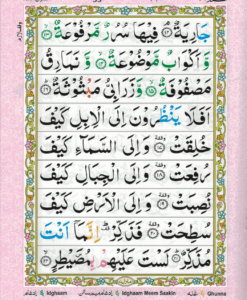 جَارِيَةٌ ﴿١٢﴾ فِيهَا سُرُرٌ مَّرْفُوعَةٌ ﴿١٣﴾
وَّ اَكْوَابٌ مَّوْضُوعَةٌ ﴿١٤﴾ وَّ نَمَارِقُ
مَصْفُوفَةٌ ﴿١٥﴾ وَّ زَرَابِيُّ مَبْثُوثَةٌ ﴿١٦﴾
اَفَلَا يَنْظُرُونَ اِلَى الْاِبِلِ كَيْفَ
خُلِقَتْ ﴿١٧﴾ وَ اِلَى السَّمَآءِ كَيْفَ
رُفِعَتْ ﴿١٨﴾ وَ اِلَى الْجِبَالِ كَيْفَ
نُصِبَتْ ﴿١٩﴾ وَ اِلَى الْاَرْضِ كَيْفَ
سُطِحَتْ ﴿٢٠﴾ فَذَكِّرْ اِنَّمَا اَنْتَ
مُذَكِّرٌ ﴿٢١﴾ لَسْتَ عَلَيْهِمْ بِمُصَيْطِرٍ ﴿٢٢﴾
Idghaam Idghaam Meem Saakin Ghunna